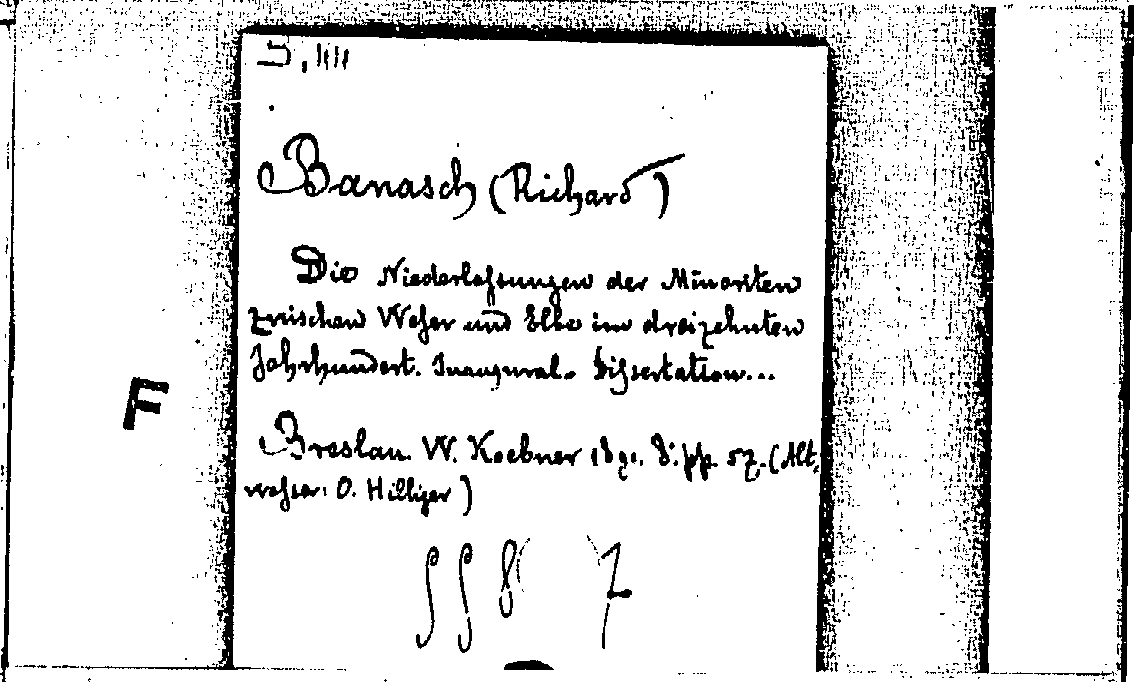 Banasch (Richard)
Die Niederlassungen der Minoriten
zwischen Weser und Elbe im dreizehnten
Jahrhundert. Inaugural-Dissertation...
Breslau. W. Koebner 1891. 8°. pp. 57. (Alt-
wasser: O. Hilliger)
F